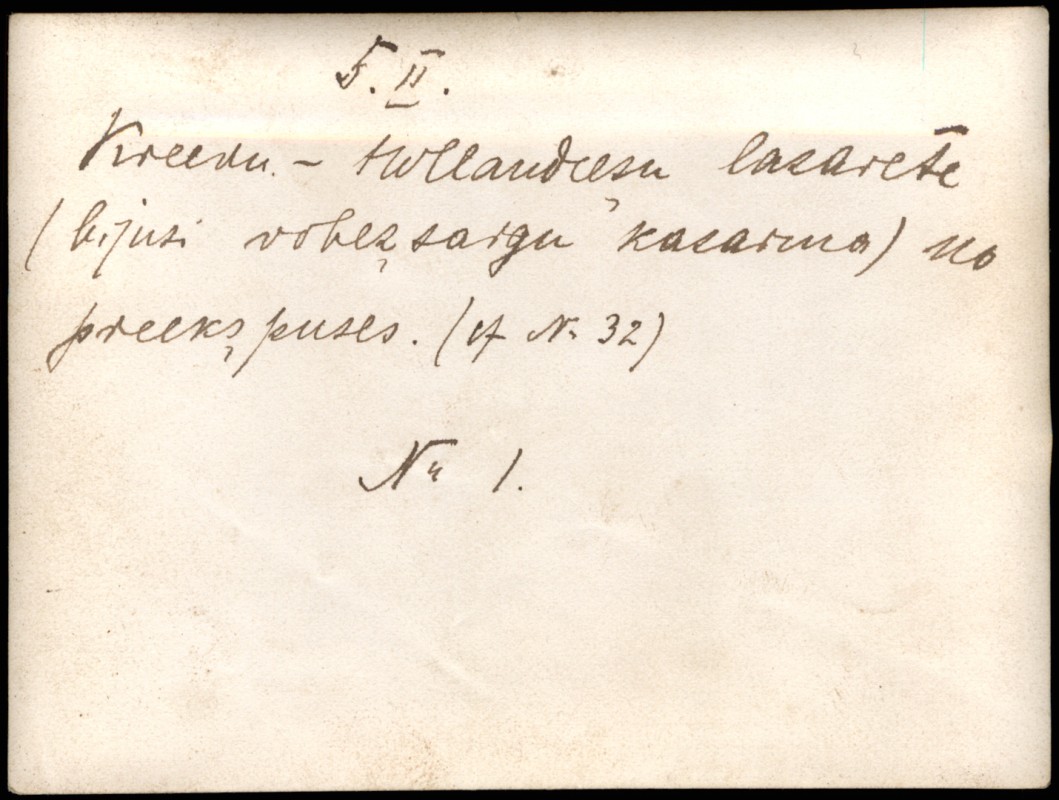 5. II.
Kreevu - Hollandeešu lasarete
(bijusi robežsargu kasarma) no
preekšpuses. (cf № 32)
№ 1.